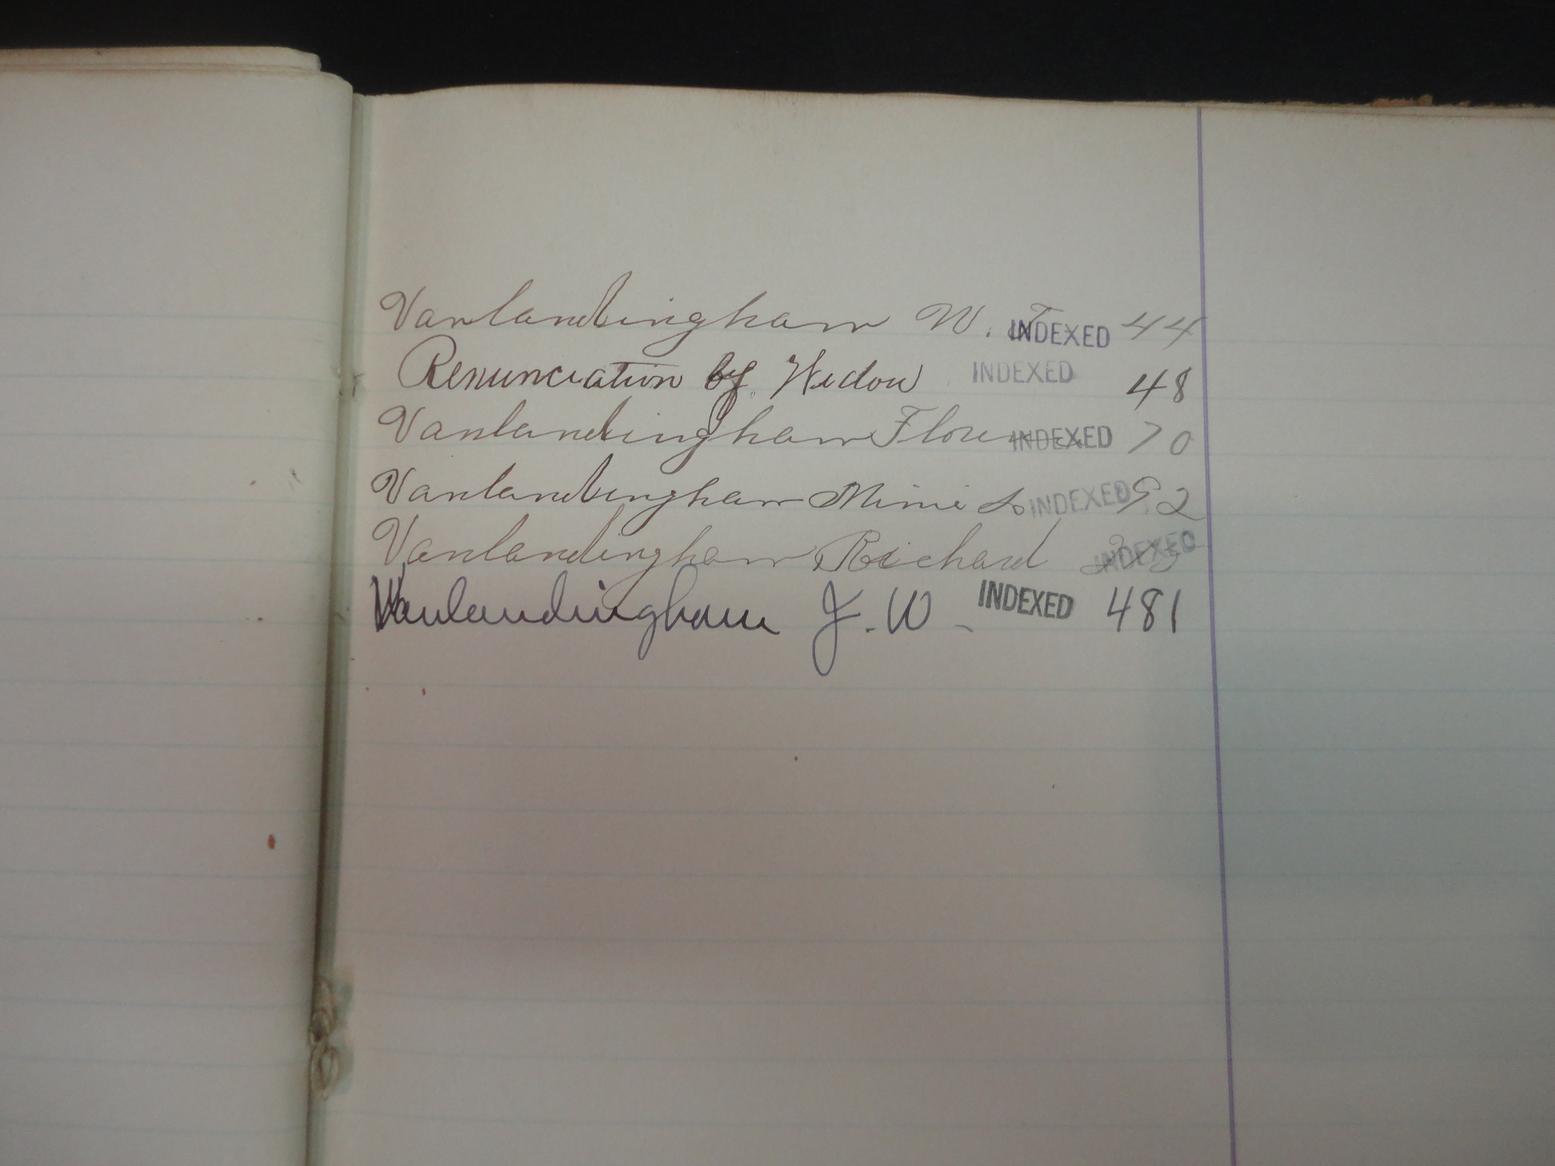 Vanlandingham W. T. INDEXED 44
Renunciation by Widow INDEXED 48
Vanlandingham INDEXED 70
Vanlandingham Mimi L INDEXED 92
Vanlandingham Richard INDEXED
Vanlandingham J. W - INDEXED 481